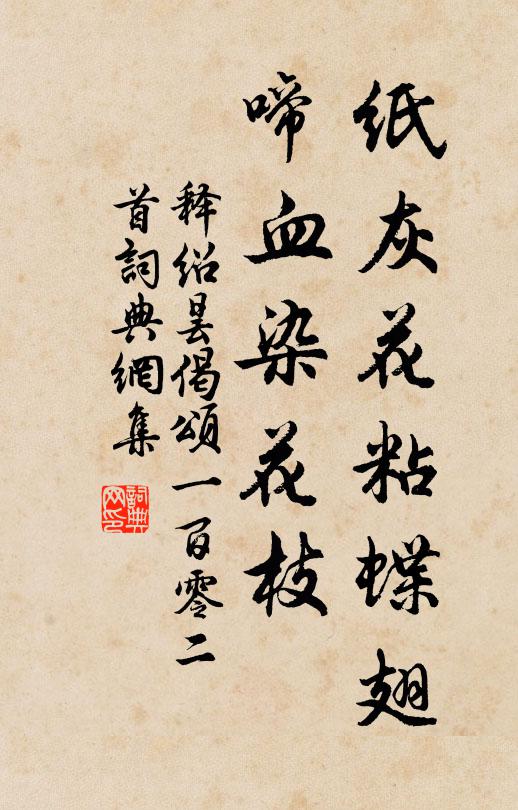 纸灰花粘蝶翅
啼血染花枝
释绍昙偈颂一百零二
首詞典網集
詞典
网印